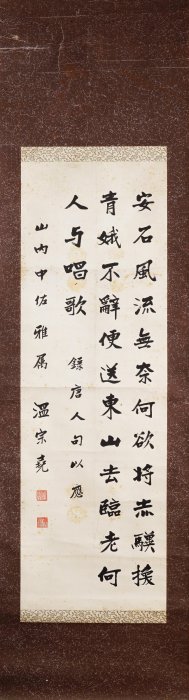 安石風流無奈何欲將赤驥換
青娥不辭便送東山去臨老何
人与唱歌　錄唐人句以應
山内中佐雅属　溫宗堯